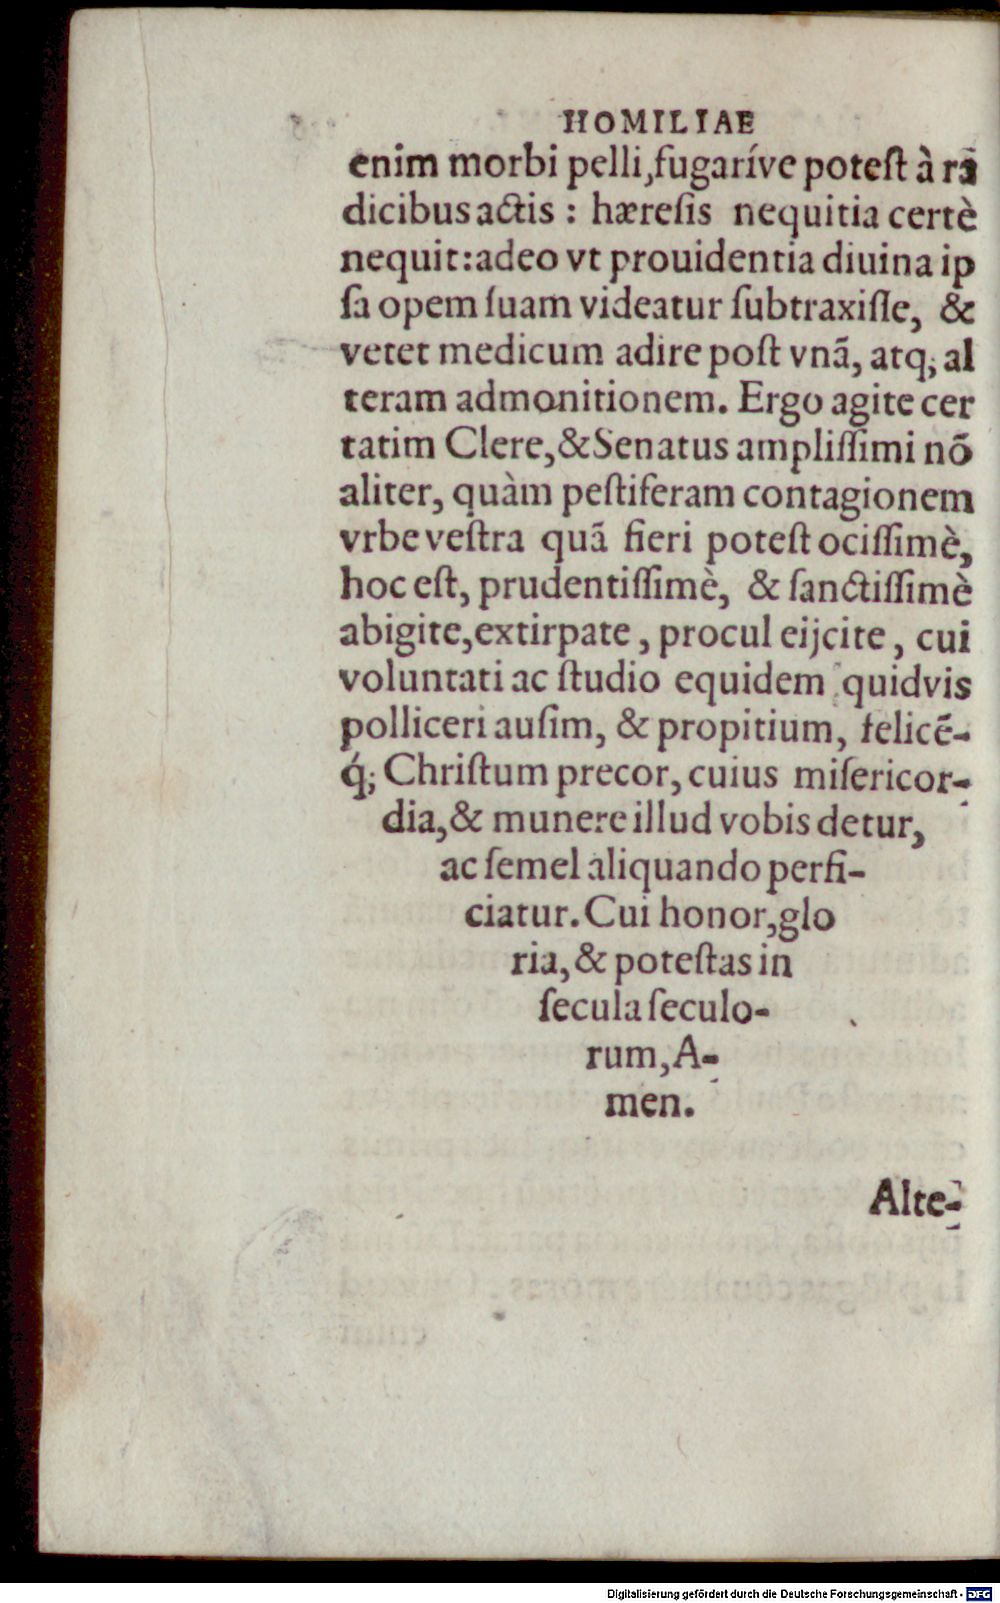 HOMILIAE
enim morbi pelli, fugaríve potest à rā
dicibus actis : hæresis nequitia certè
nequit: adeo vt prouidentia diuina ip
sa opem suam videatur subtraxisse, &
vetet medicum adire post vnã, atq; al
teram admonitionem. Ergo agite cer
tatim Clere, & Senatus amplissimi nō
aliter, quàm pestiferam contagionem
vrbe vestra quã fieri potest ocissimè,
hoc est, prudentissimè, & sanctissimè
abigite, extirpate, procul eijcite, cui
voluntati ac studio equidem quidvis
polliceri ausim, & propitium, felicē-
q́; Christum precor, cuius misericor-
dia, & munere illud vobis detur,
ac semel aliquando perfi-
ciatur. Cui honor, glo
ria, & potestas in
secula seculo-
rum, A-
men.
Alte-
Digitalisierung gefördert durch die Deutsche Forschungsgemeinschaft - DFG